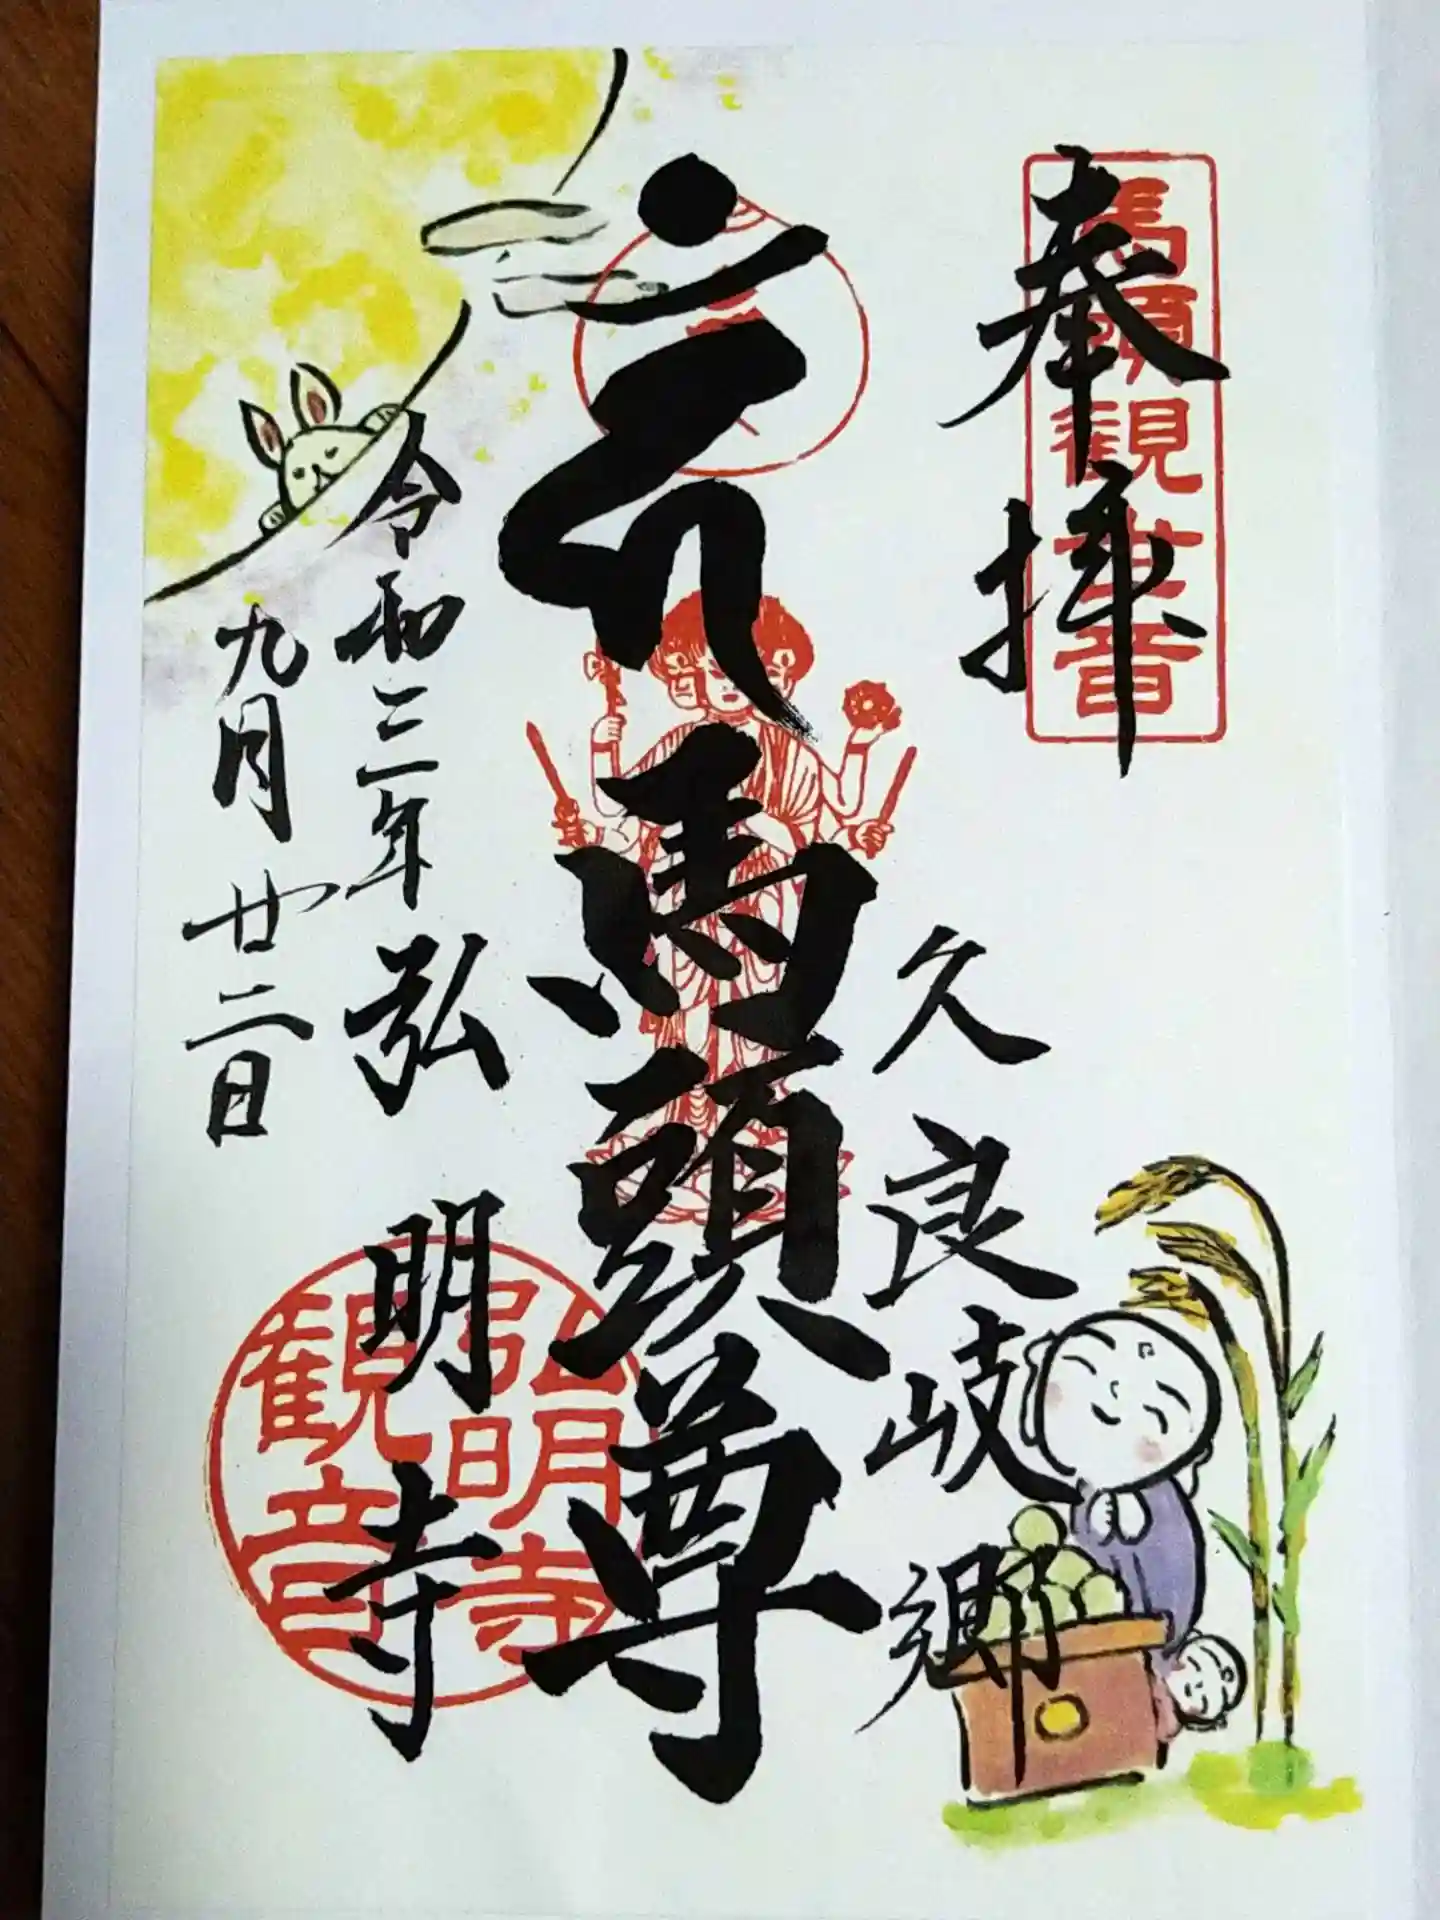 奉拝
馬頭観世音
久良岐郷
馬頭尊
令和三年
九月廿二日
弘明寺
弘明寺
観音印